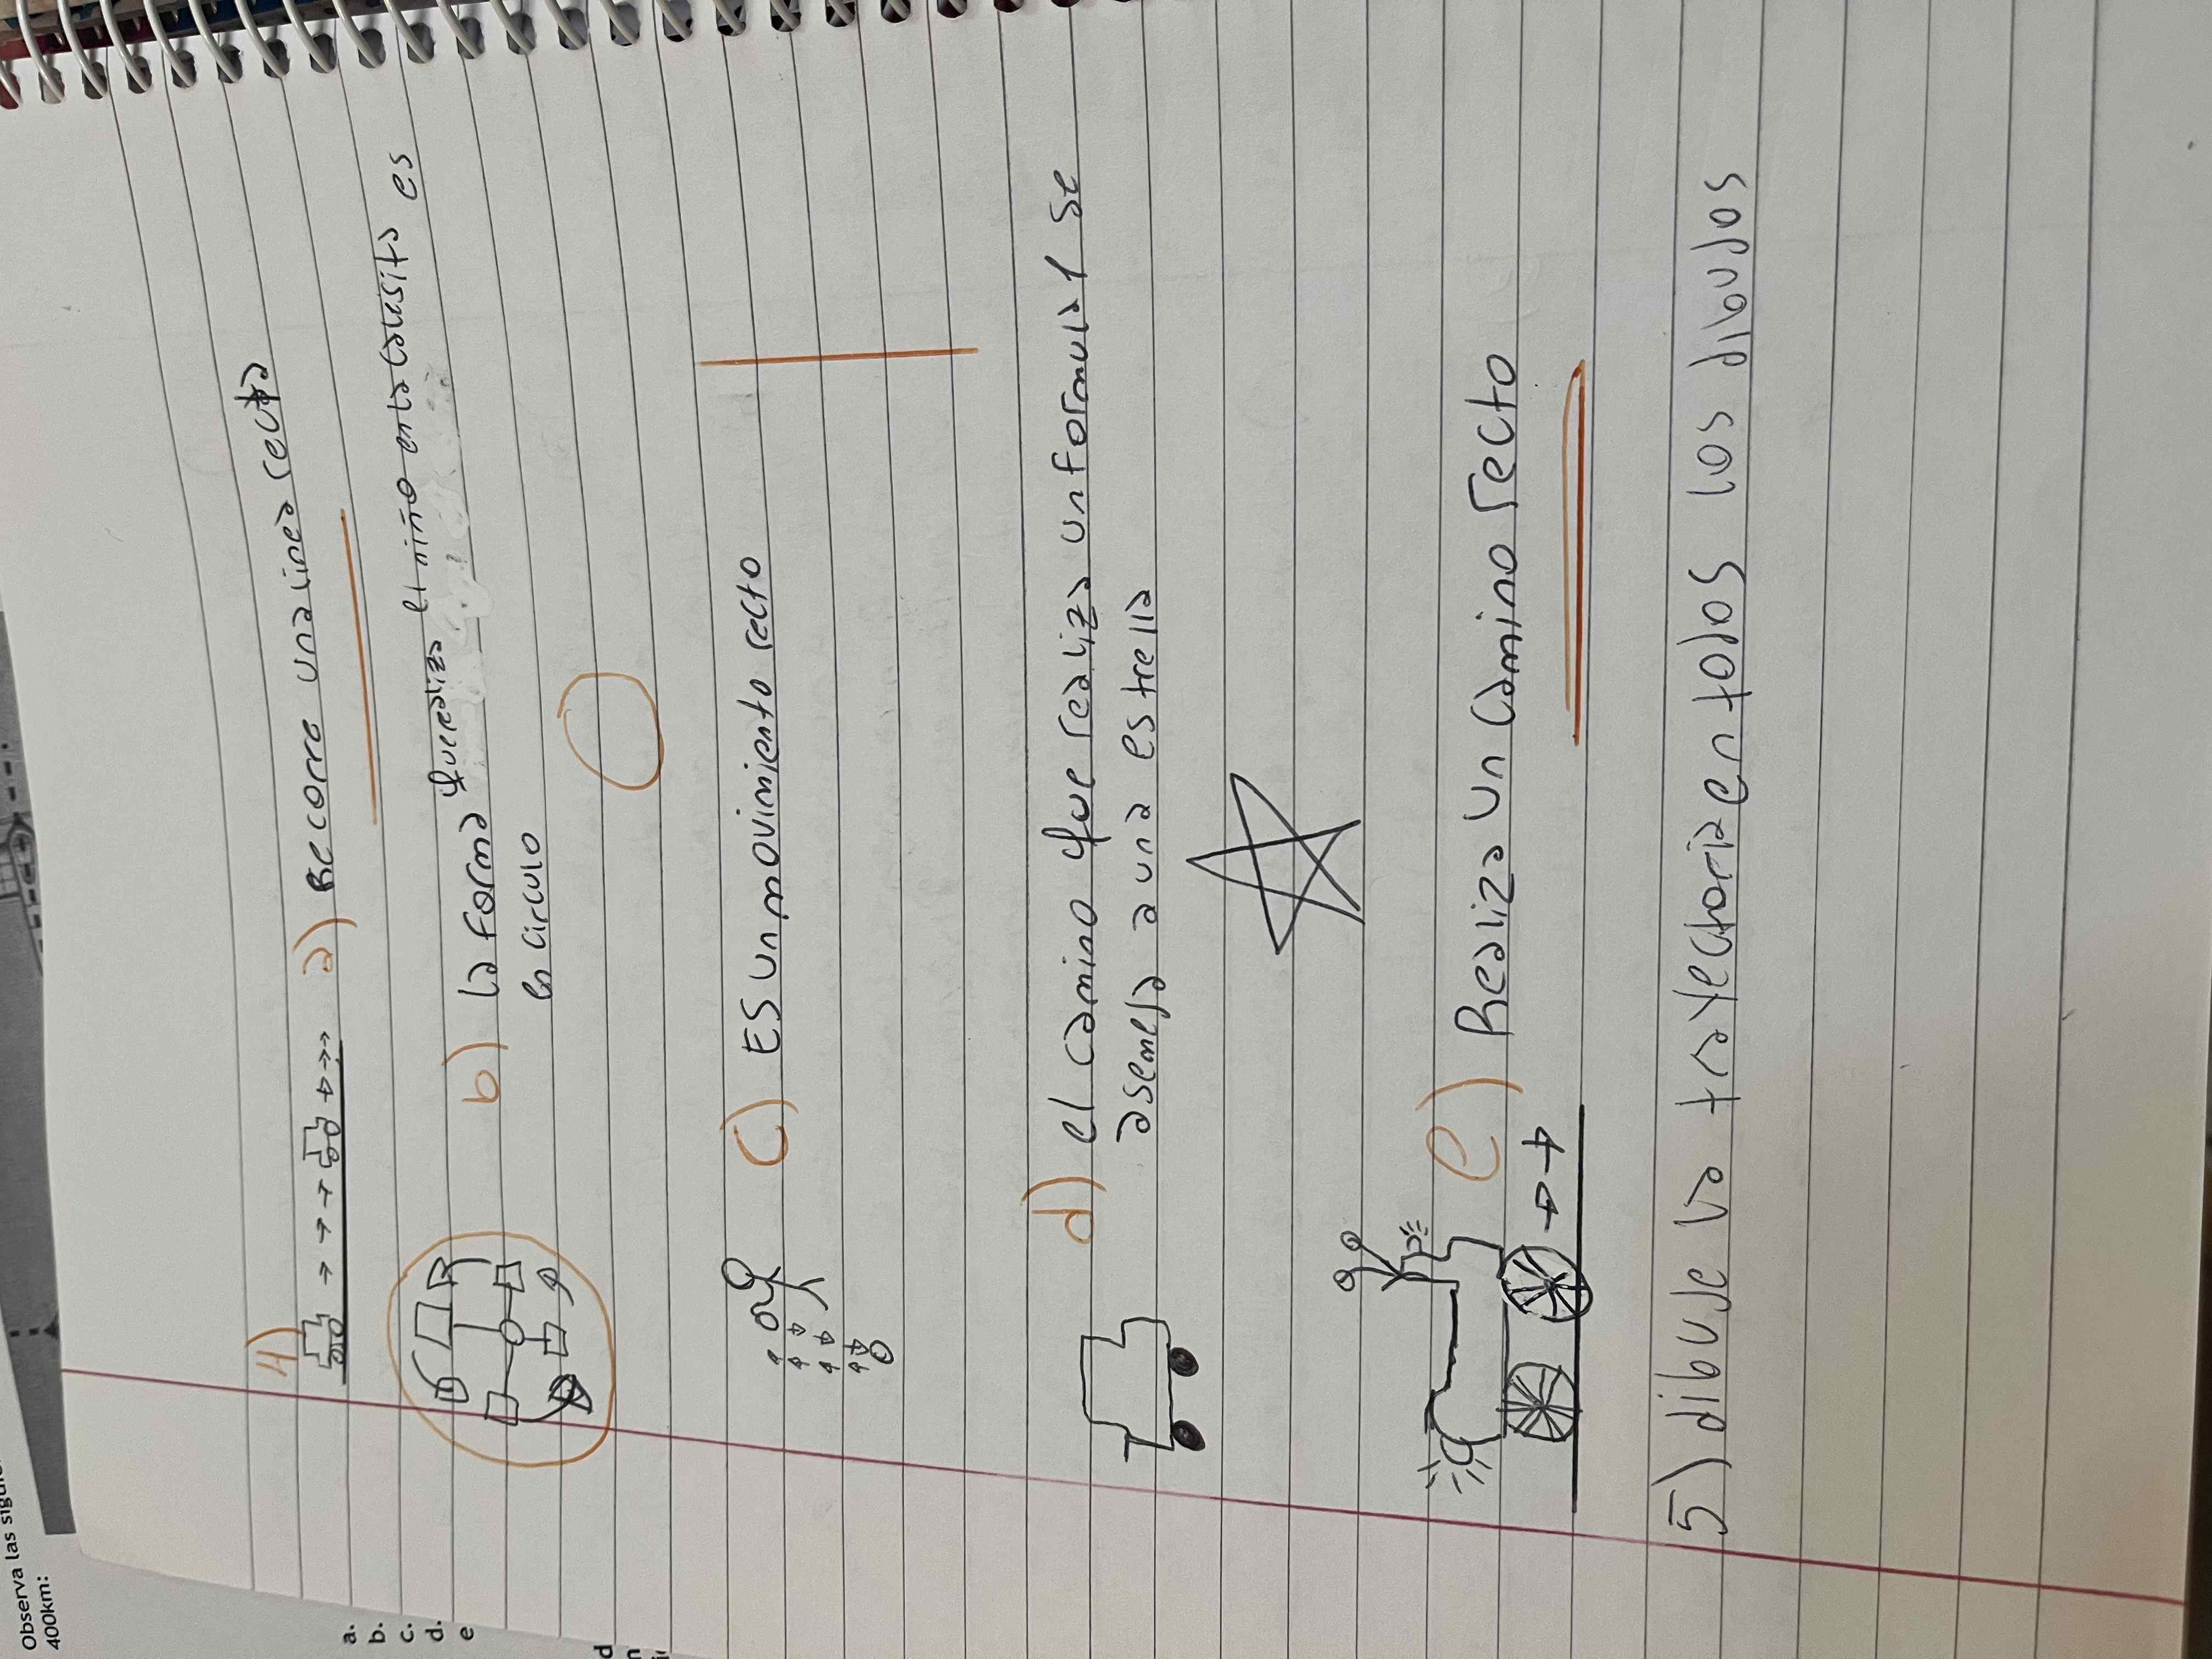 Observa las sigu
400km:
a.
b.
c.
d.
e
4)
a) Recorre una linea recta
b) la forma que realiza el niño en la calesita es
un circulo
c) ES un movimiento recto
d) el camino que realiza un formula 1 se
asemeja a una estrella
e) Realiza un camino recto
5) dibuje la trayectoria en todos los dibujos